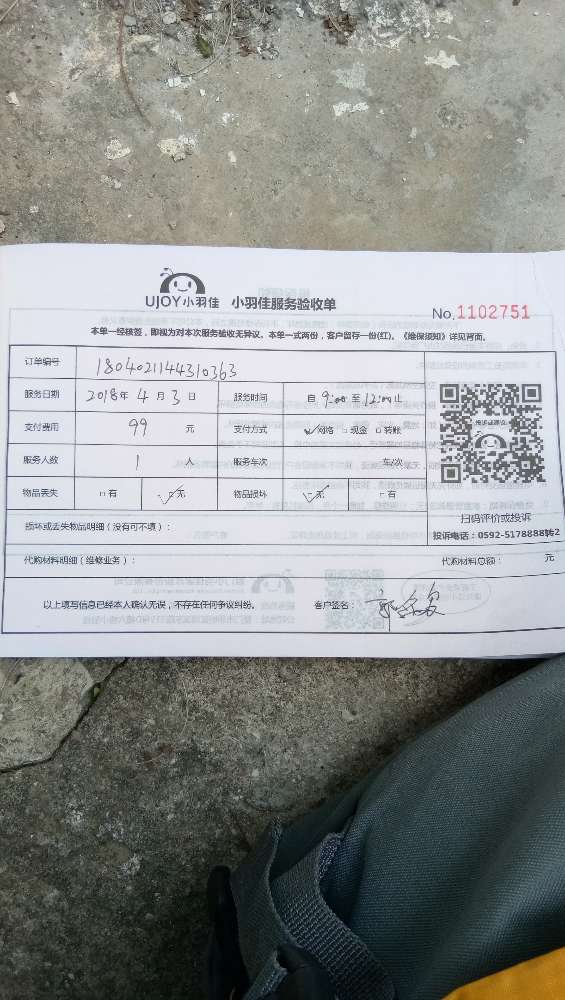 UJOY小羽佳 小羽佳服务验收单
No.1102751
本单一经核签，即视为对本次服务验收无异议。本单一式两份，客户留存一份(红)。《维保须知》详见背面。
订单编号 1804021144310363
服务日期 2018年4月3日 服务时间 自9:00至12:00止
支付费用 99 元 支付方式 ☑网络 □现金 □转账
服务人数 1 人 服务车次 车/次
物品丢失 □有 ☑无 物品损坏 ☑无 □有
投诉或建议
扫码评价或投诉
损坏或丢失物品明细（没有可不填）：
投诉电话：0592-5178888转2
代购材料明细（维修业务）： 代购材料总额： 元
以上填写信息已经本人确认无误，不存在任何争议纠纷。 客户签名：